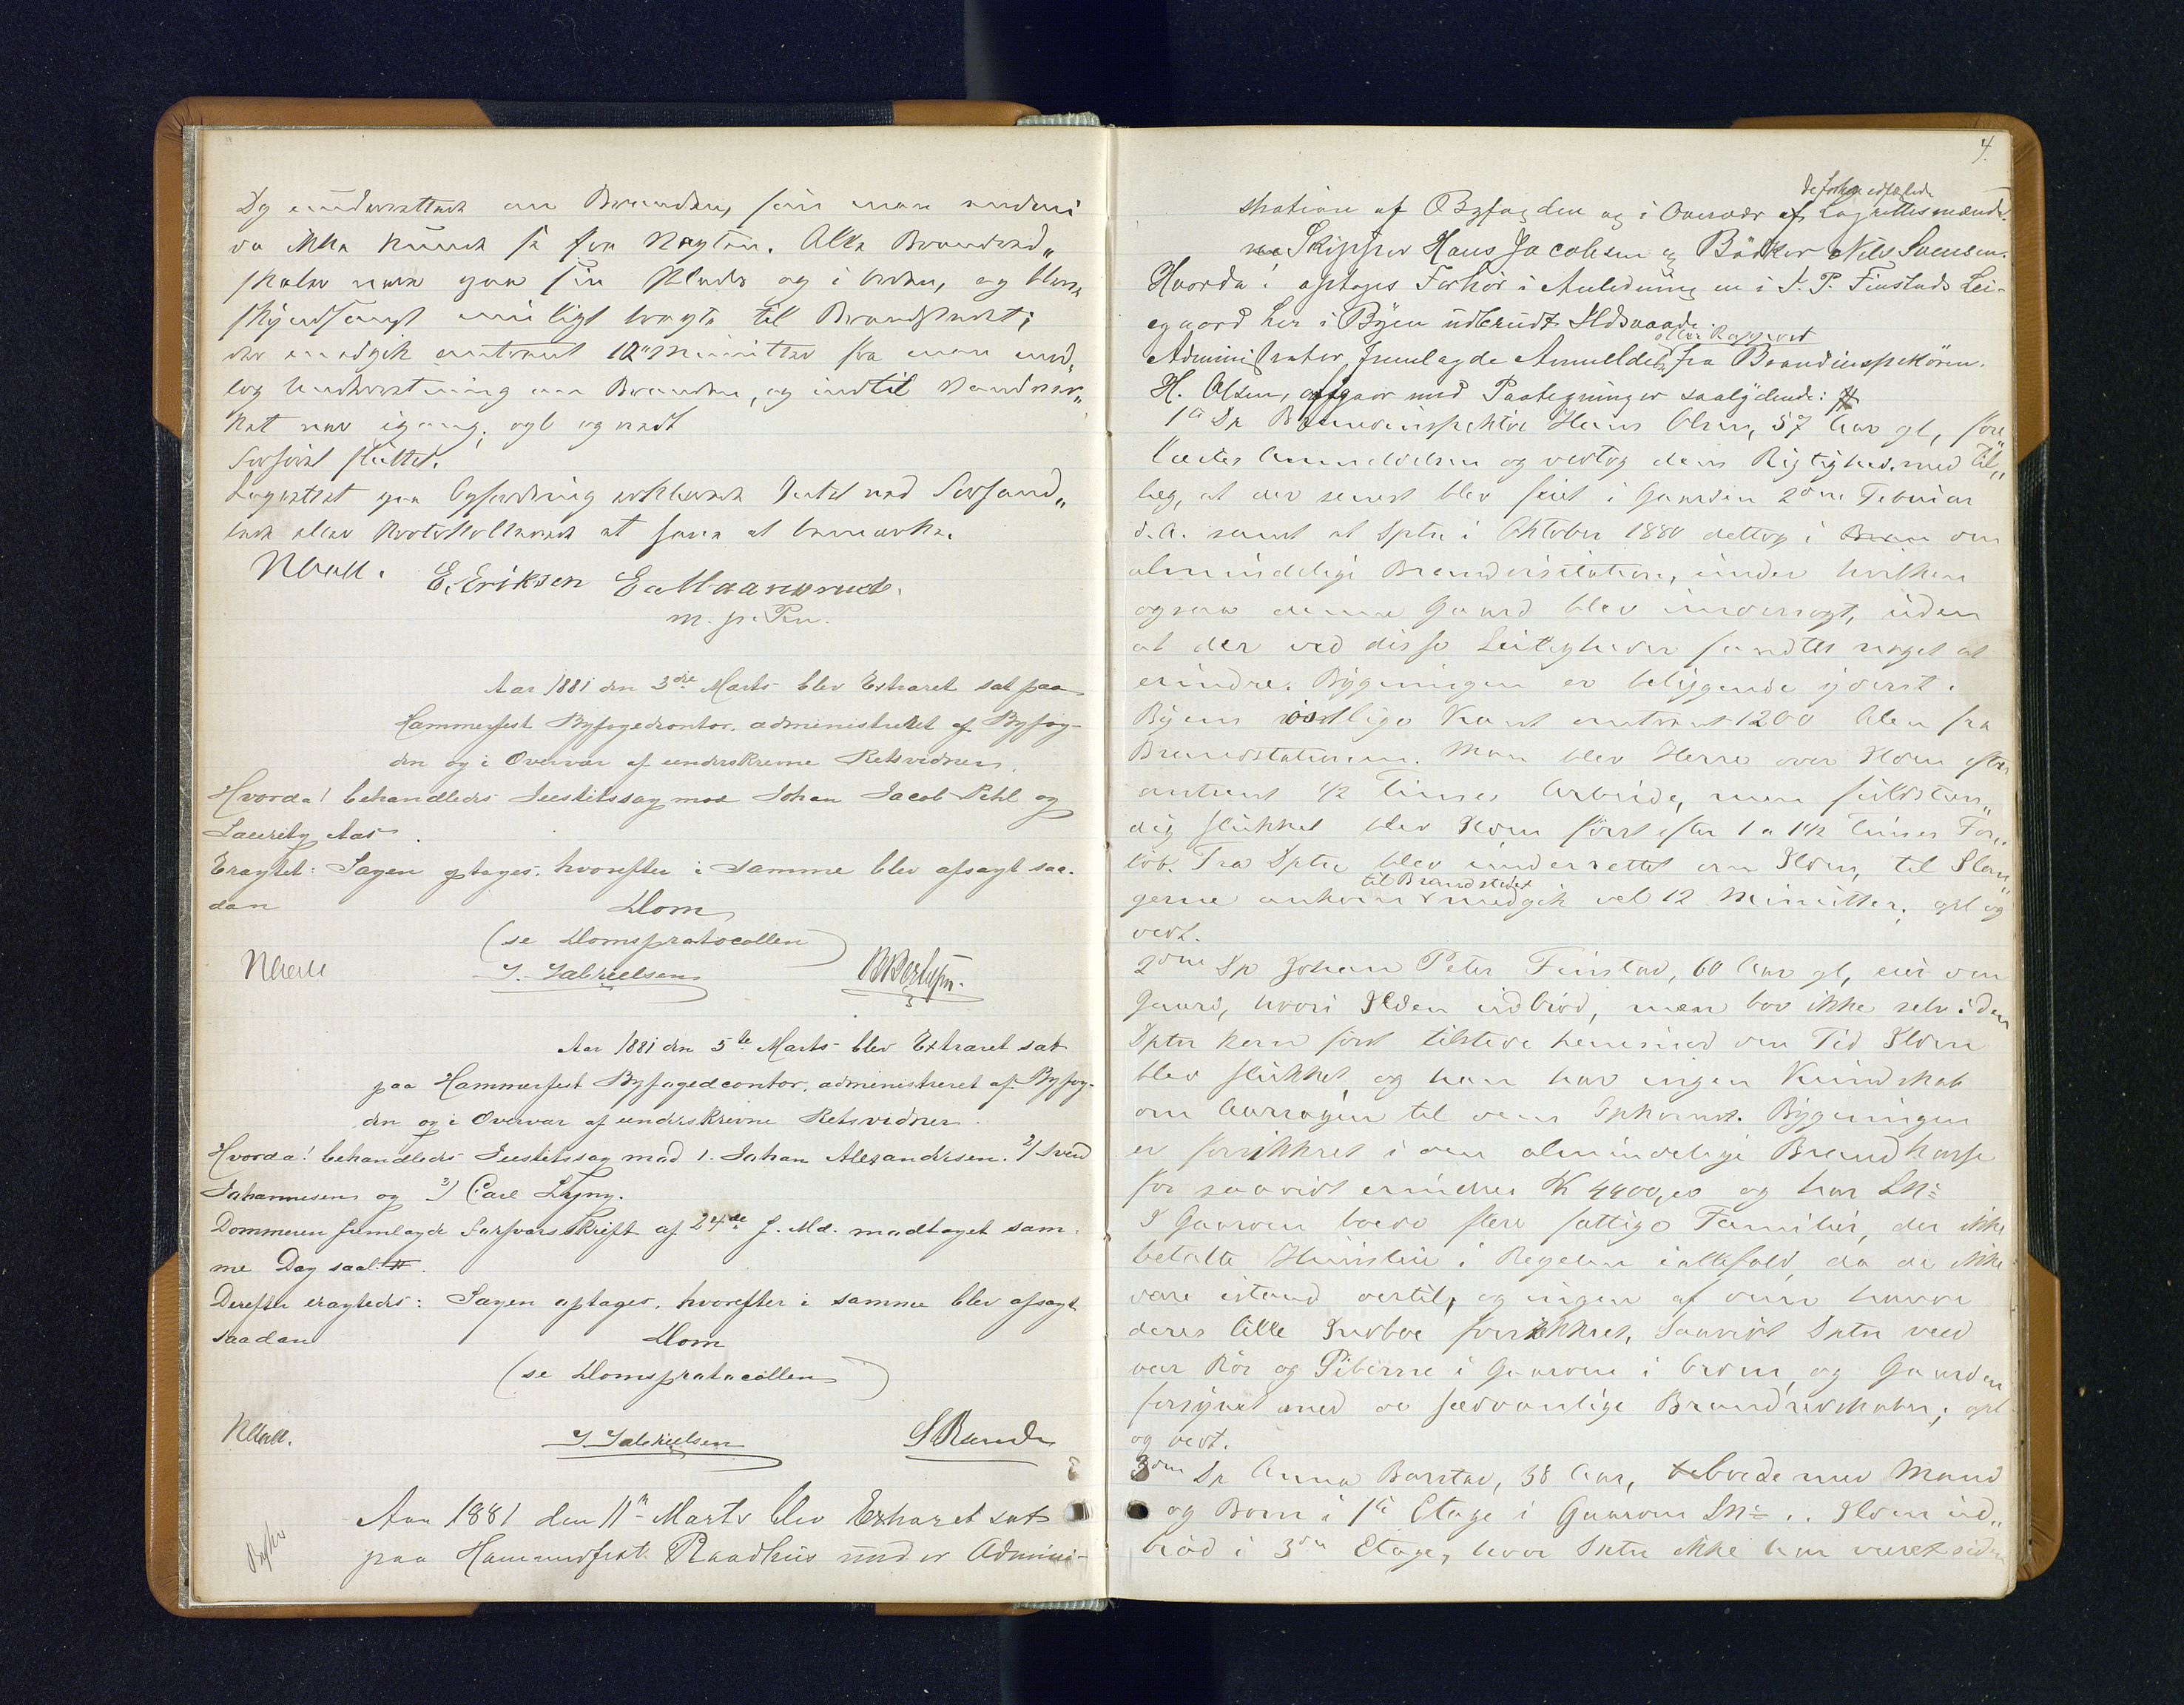 Dp underrettede om Branden, for man anden
da ikke kunde få fra Nøglen. Alle Brandred„
skaber vare paa sin Plads og i Orden, og bleve
skyndsomst muligt bragte til Brandstedet;
der medgik omtrent 10 Minutter fra man mod„
tog Underretning om Branden, og indtil Vandvær„
ket var igang. opl og vedt
Forhøret sluttet.
Lagrettet paa Opfordring erklærede Intet ved Forfund„
ene eller Protokollerede at have at bemærke.
E. Eriksen E. Maarnsrud.
m. p. Pen.
Aar 1881 den 3die Marts blev Extraret sat paa
Hammerfest Byfogedcontor, administreret af Byfog-
den og i Overvær af underskrevne Retsvidner.
Hvorda! behandledes Justitssag mod Johan Jacob Pehl og
Lauritz Aas.
Eragtet: Sagen optages, hvorefter i samme blev afsagt saa-
dan Dom
(se Domsprotocollen)
J. Gabrielsen
Aar 1881 den 5te Marts blev Extraret sat
paa Hammerfest Byfogedcontor, administreret af Byfog-
den og i Overvær af underskrevne Retsvidner.
Hvorda! behandledes Justitssag mod 1. Johan Alexandersen. 2) Svend
Johannesen og 3) Carl Lyng.
Dommeren fremlagde Forsvarsskrift af 24de f. Md. modtaget sam-
me Dag saal. #.
Derefter eragtedes: Sagen optages, hvorefter i samme blev afsagt
saadan Dom
(se Domsprotocollen)
J. Gabrielsen
Aar 1881 den 11te Marts blev Extraret sat
paa Hammerfest Raadhus under Admini-
4.
stration af Byfogden og i Overvær af de Lagrettesmænd.
Skipper Hans Jacobsen og Bödker Nils Svensen.
Hvorda! optoges Forhör i Anledning en i J. P. Finstads Lei-
egaard her i Byen udbrudt Ildsvaade.
Administrator fremlagde Anmeldelse eller Rapport fra Brandinspektören
H. Olsen, afgaar med Paategninger saalydende: #
1te Dp Brandinspektör Hans Olsen, 57 Aar gl, fore„
læstes Anmeldelsen og vedtog dens Rigtighed, med Til„
læg, at der senest blev feiet i Gaarden 2den Februar
d. A. samt at Dptn i Oktober 1880 deltog i den
almindelige Brandvisitation, under hvilken
ogsaa denne Gaard blev undersøgt, uden
at der ved disse Leiligheder fandtes noget at
erindre. Bygningen er beliggende yderst i
Byens östlige Kant omtrent 1200 Alen fra
Brandstationen. Man blev Herre over Ilden efter
omtrent 1/2 Times Arbeide, men fuldstæn„
dig slukket blev Ilden først efter 1 a 1 1/2 Times For„
löb. Fra Dptn blev underrettet om Ilden, til Slan„
gerne ankom til Brandstedet medgik vel 12 Minutter; opl og
vedt.
2den Dp Johan Peter Finstad, 60 Aar gl, eier den
Gaard, hvori Ilden udbröd, men bor ikke selv i den
Dptn kom først tilstede henimod den Tid Ilden
blev slukket, og han har ingen Kundskab
om Aarsagen til dens Opkomst. Bygningen
er forsikkret i den almindelige Brandkasse
for saavidt erindres K 4400,00 og har №
I Gaarden boede flere fattige Familier, der ikke
betalte Husleie i Regelen iallefald, da de ikke
vare istand dertil, og ingen af dem havde
deres lille Indbo forsikkret. Saavidt Dptn veed
var Rör og Piberne i Gaarden i Orden, og Gaarden
forsynet med de sædvanlige Brandredskaber; opl
og vedt.
3die Dp Anna Barstad, 38 Aar, beboede med Mand
og Born i 1te Etage i Gaarden №. Ilden ud„
bröd i 3die Etage, hvor Dptn ikke har været siden